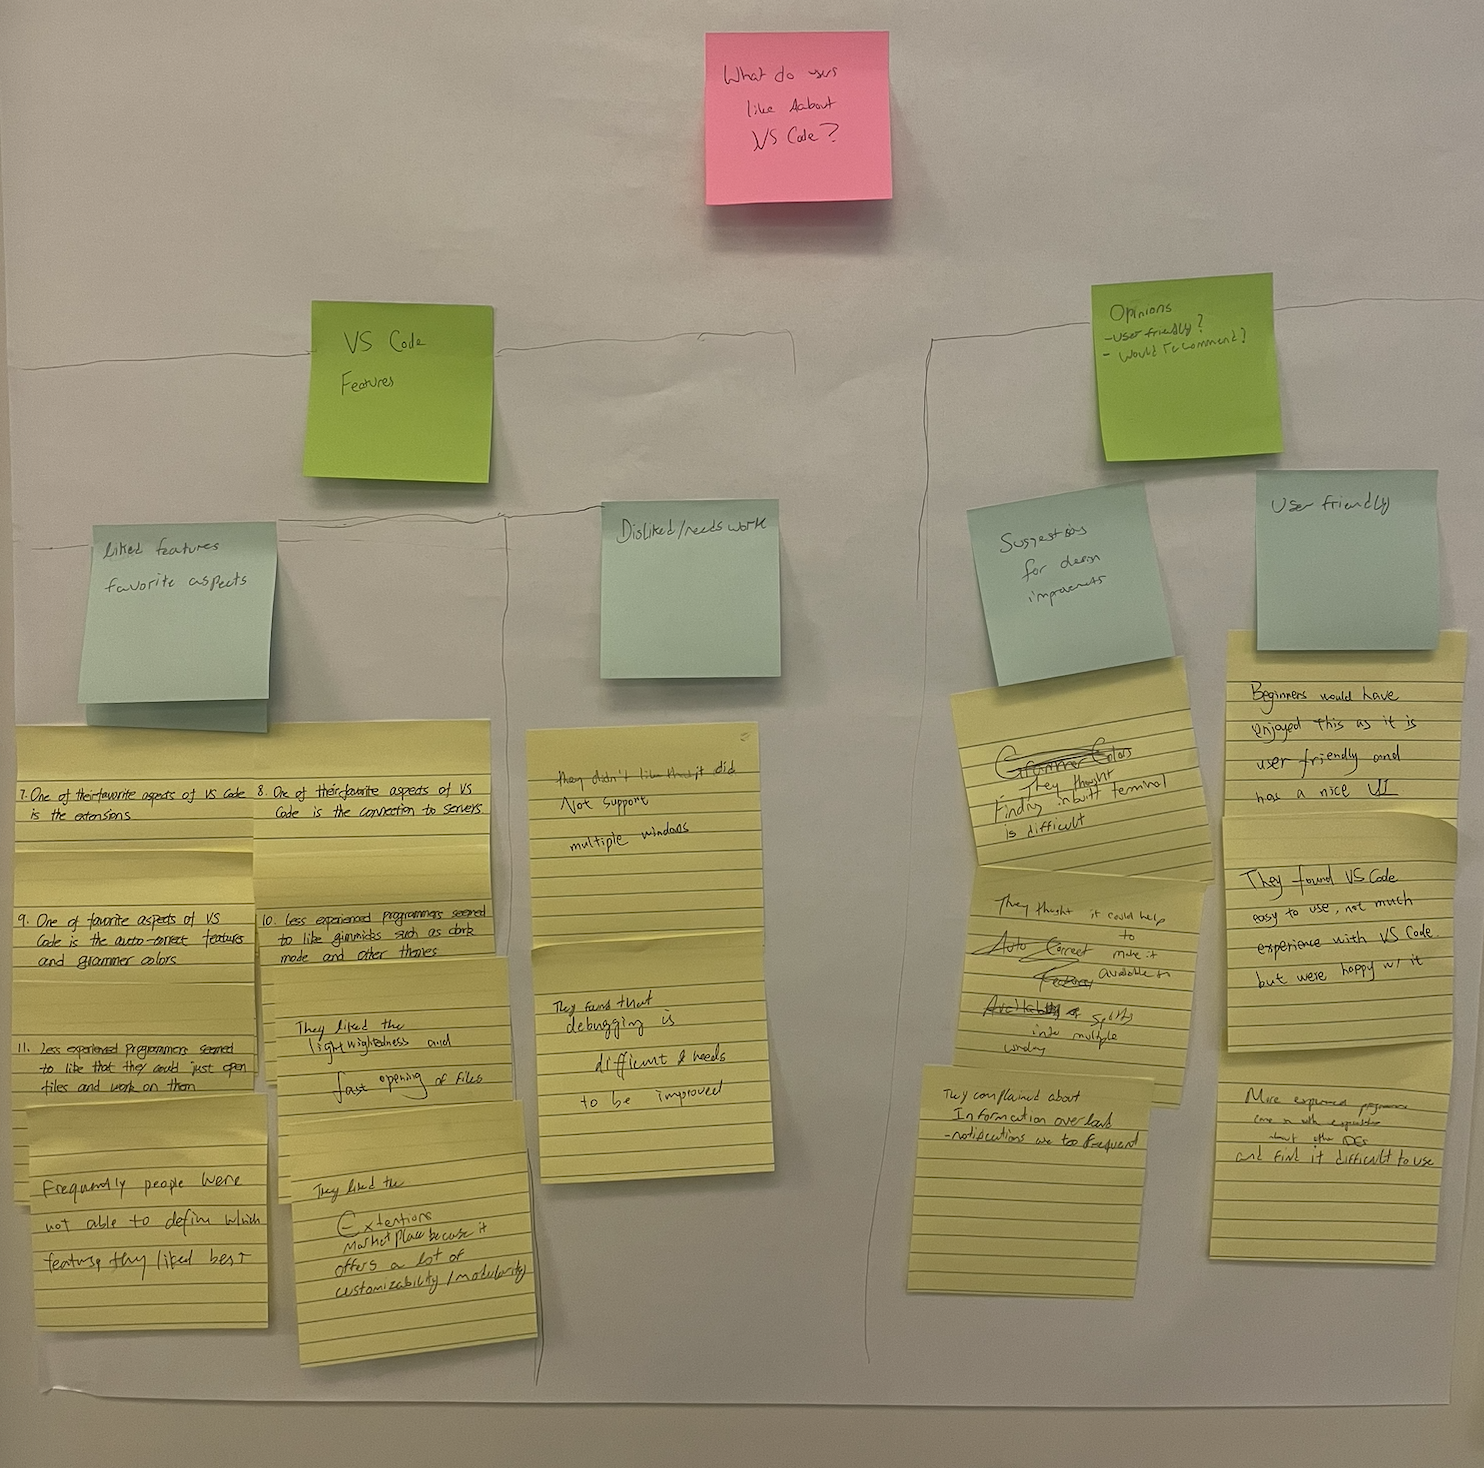 What do users
like about
VS Code?
VS Code
Features
Opinions
- User friendly?
- Would recommend?
liked features
favorite aspects
Disliked/needs work
Suggestions
for design
improvements
User friendly
7. One of their favorite aspects of VS Code
is the extensions
8. One of their favorite aspects of VS
Code is the connection to servers
9. One of favorite aspects of VS
Code is the auto-correct features
and grammer colors
10. Less experienced programmers seemed
to like gimmicks such as dark
mode and other themes
11. Less experienced programmers seemed
to like that they could just open
files and work on them
They liked the
lightwightedness and
fast opening of files
Frequently people were
not able to define which
feature they liked best
They liked the
Extentions
marketplace because it
offers a lot of
customizability/modularity
they didn't like that it did
Not support
multiple windows
They found that
debugging is
difficult & needs
to be improved
Grammer Colors
They thought
Finding inbuilt terminal
is difficult
They thought it could help
to
Auto Correct make it
available in
Features
splits
into multiple
They complained about
Information overload
-notifications are too frequent
Beginners would have
enjoyed this as it is
user friendly and
has a nice UI
They found VS Code
easy to use, not much
experience with VS Code
but were happy w/ it
More experienced programmers
come in with expectations
about other IDEs
and find it difficult to use